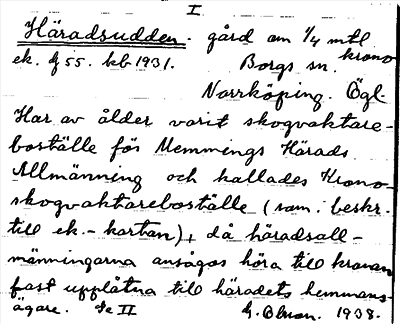 I
Häradsudden. gård om 1/4 mtl krono
ek. bl 55. kb 1931. Borgs sn.
Norrköping. Ögl
Har av ålder varit skogvaktare-
boställe för Memmings Härads
Allmänning och kallades Krono-
skogvaktareboställe (som i beskr.
till ek.-kartan), då häradsall-
männingarna ansågos höra till kronan
fast upplåtna till häradets hemmans-
ägare. Se II G. Olson. 1938.